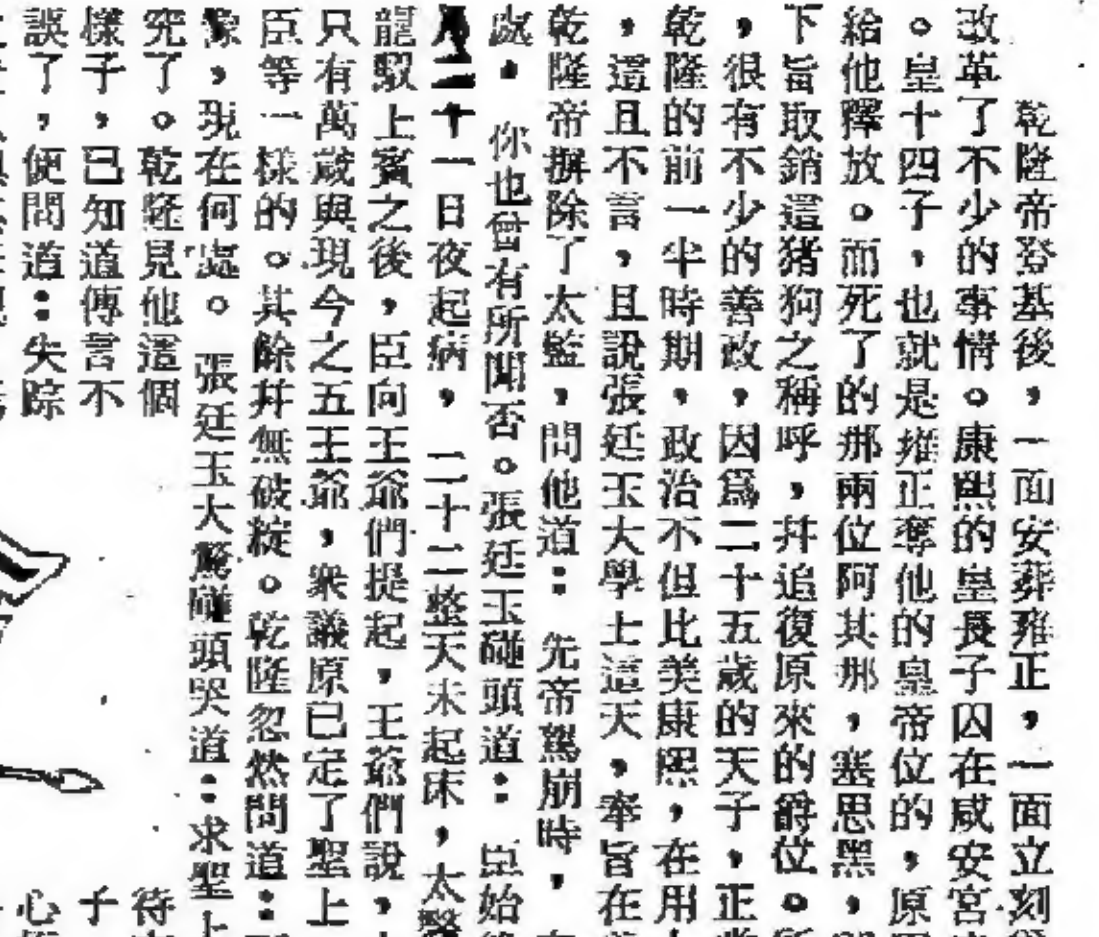 乾隆帝登基後，一面安葬雍正，一面立刻
改革了不少的事情。康熙的皇長子囚在咸安宮
。皇十四子，也就是雍正奪他的皇帝位的，原
給他釋放。而死了的那兩位阿其那，塞思黑，
下旨取銷這猪狗之稱呼，幷追復原來的爵位。
，很有不少的善政，因爲二十五歲的天子，正
乾隆的前一半時期，政治不但比美康熙，在用
，這且不言，且說張廷玉大學士這天，奉旨在
乾隆帝摒除了太監，問他道：先帝駕崩時，
處，你也曾有所聞否。張廷玉碰頭道：臣始
月二十一日夜起病，二十二整天未起床，太醫
龍馭上賓之後，臣向王爺們提起，王爺們說，
只有萬歲與現今之五王爺，衆議原已定了聖上
臣等一樣的。其餘幷無破綻。乾隆忽然問道：
像，現在何處。張廷玉大驚碰頭哭道：求聖上
究了。乾隆見他這個
樣子，已知道傳言不
誤了，便問道：失踪
待
子
心